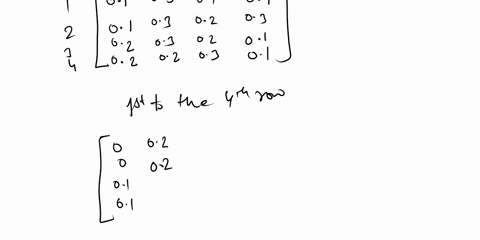 2 0.1 0.3 0.2 0.3
3 0.2 0.3 0.2 0.1
4 0.2 0.2 0.3 0.1
1st to the 4th row
0 0.2
0 0.2
0.1
0.1